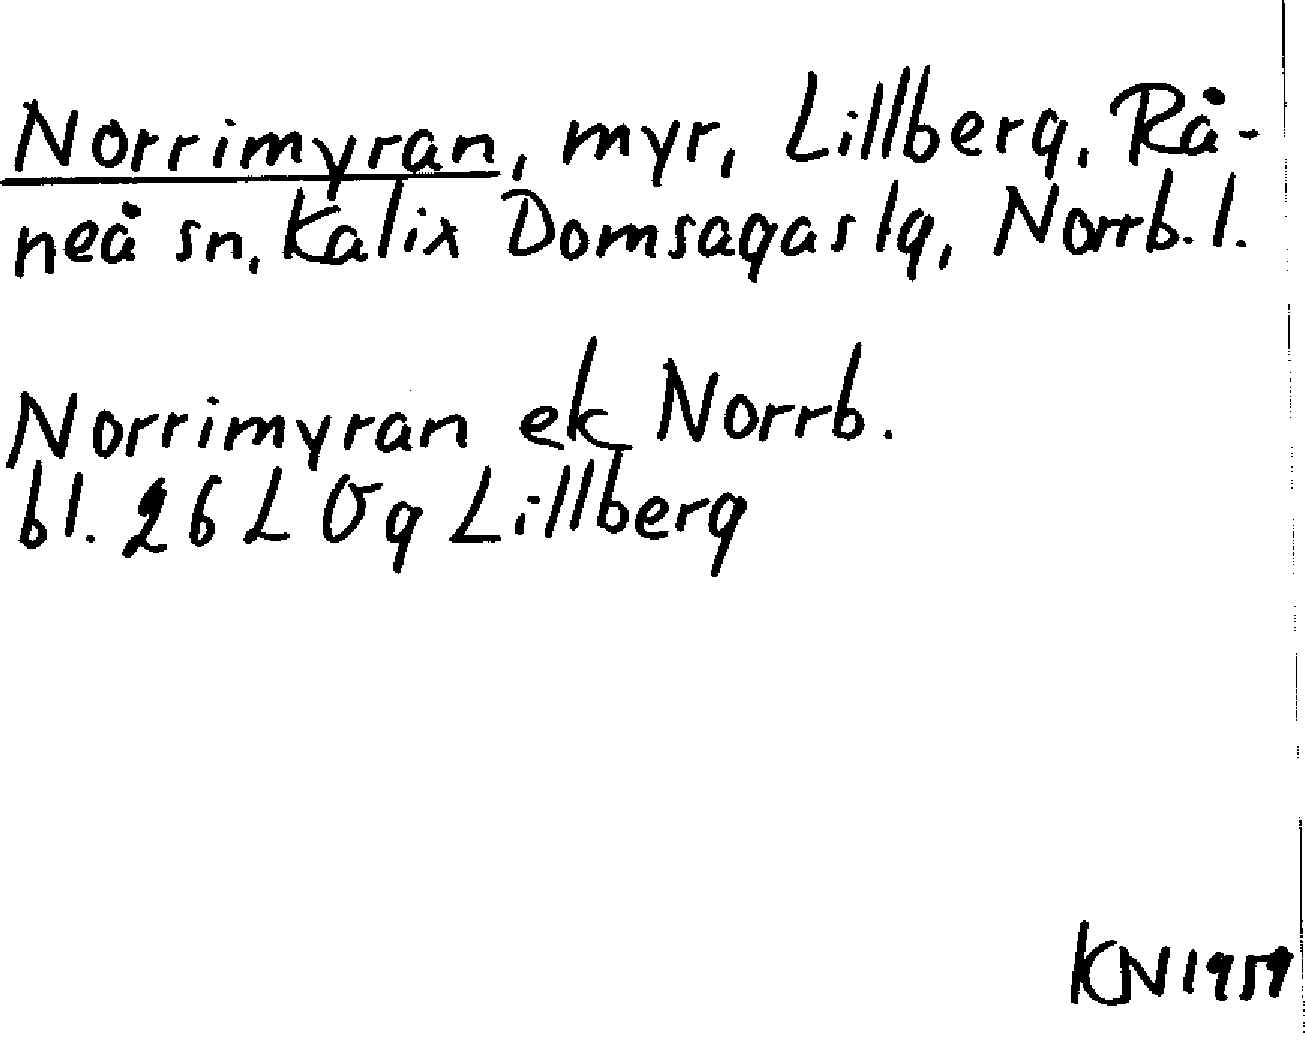 Norrimyran, myr, Lillberg, Rå-
neå sn, Kalix Domsagas lg, Norrb. l.
Norrimyran ek Norrb.
bl. 26 L 0g Lillberg
KN 1959